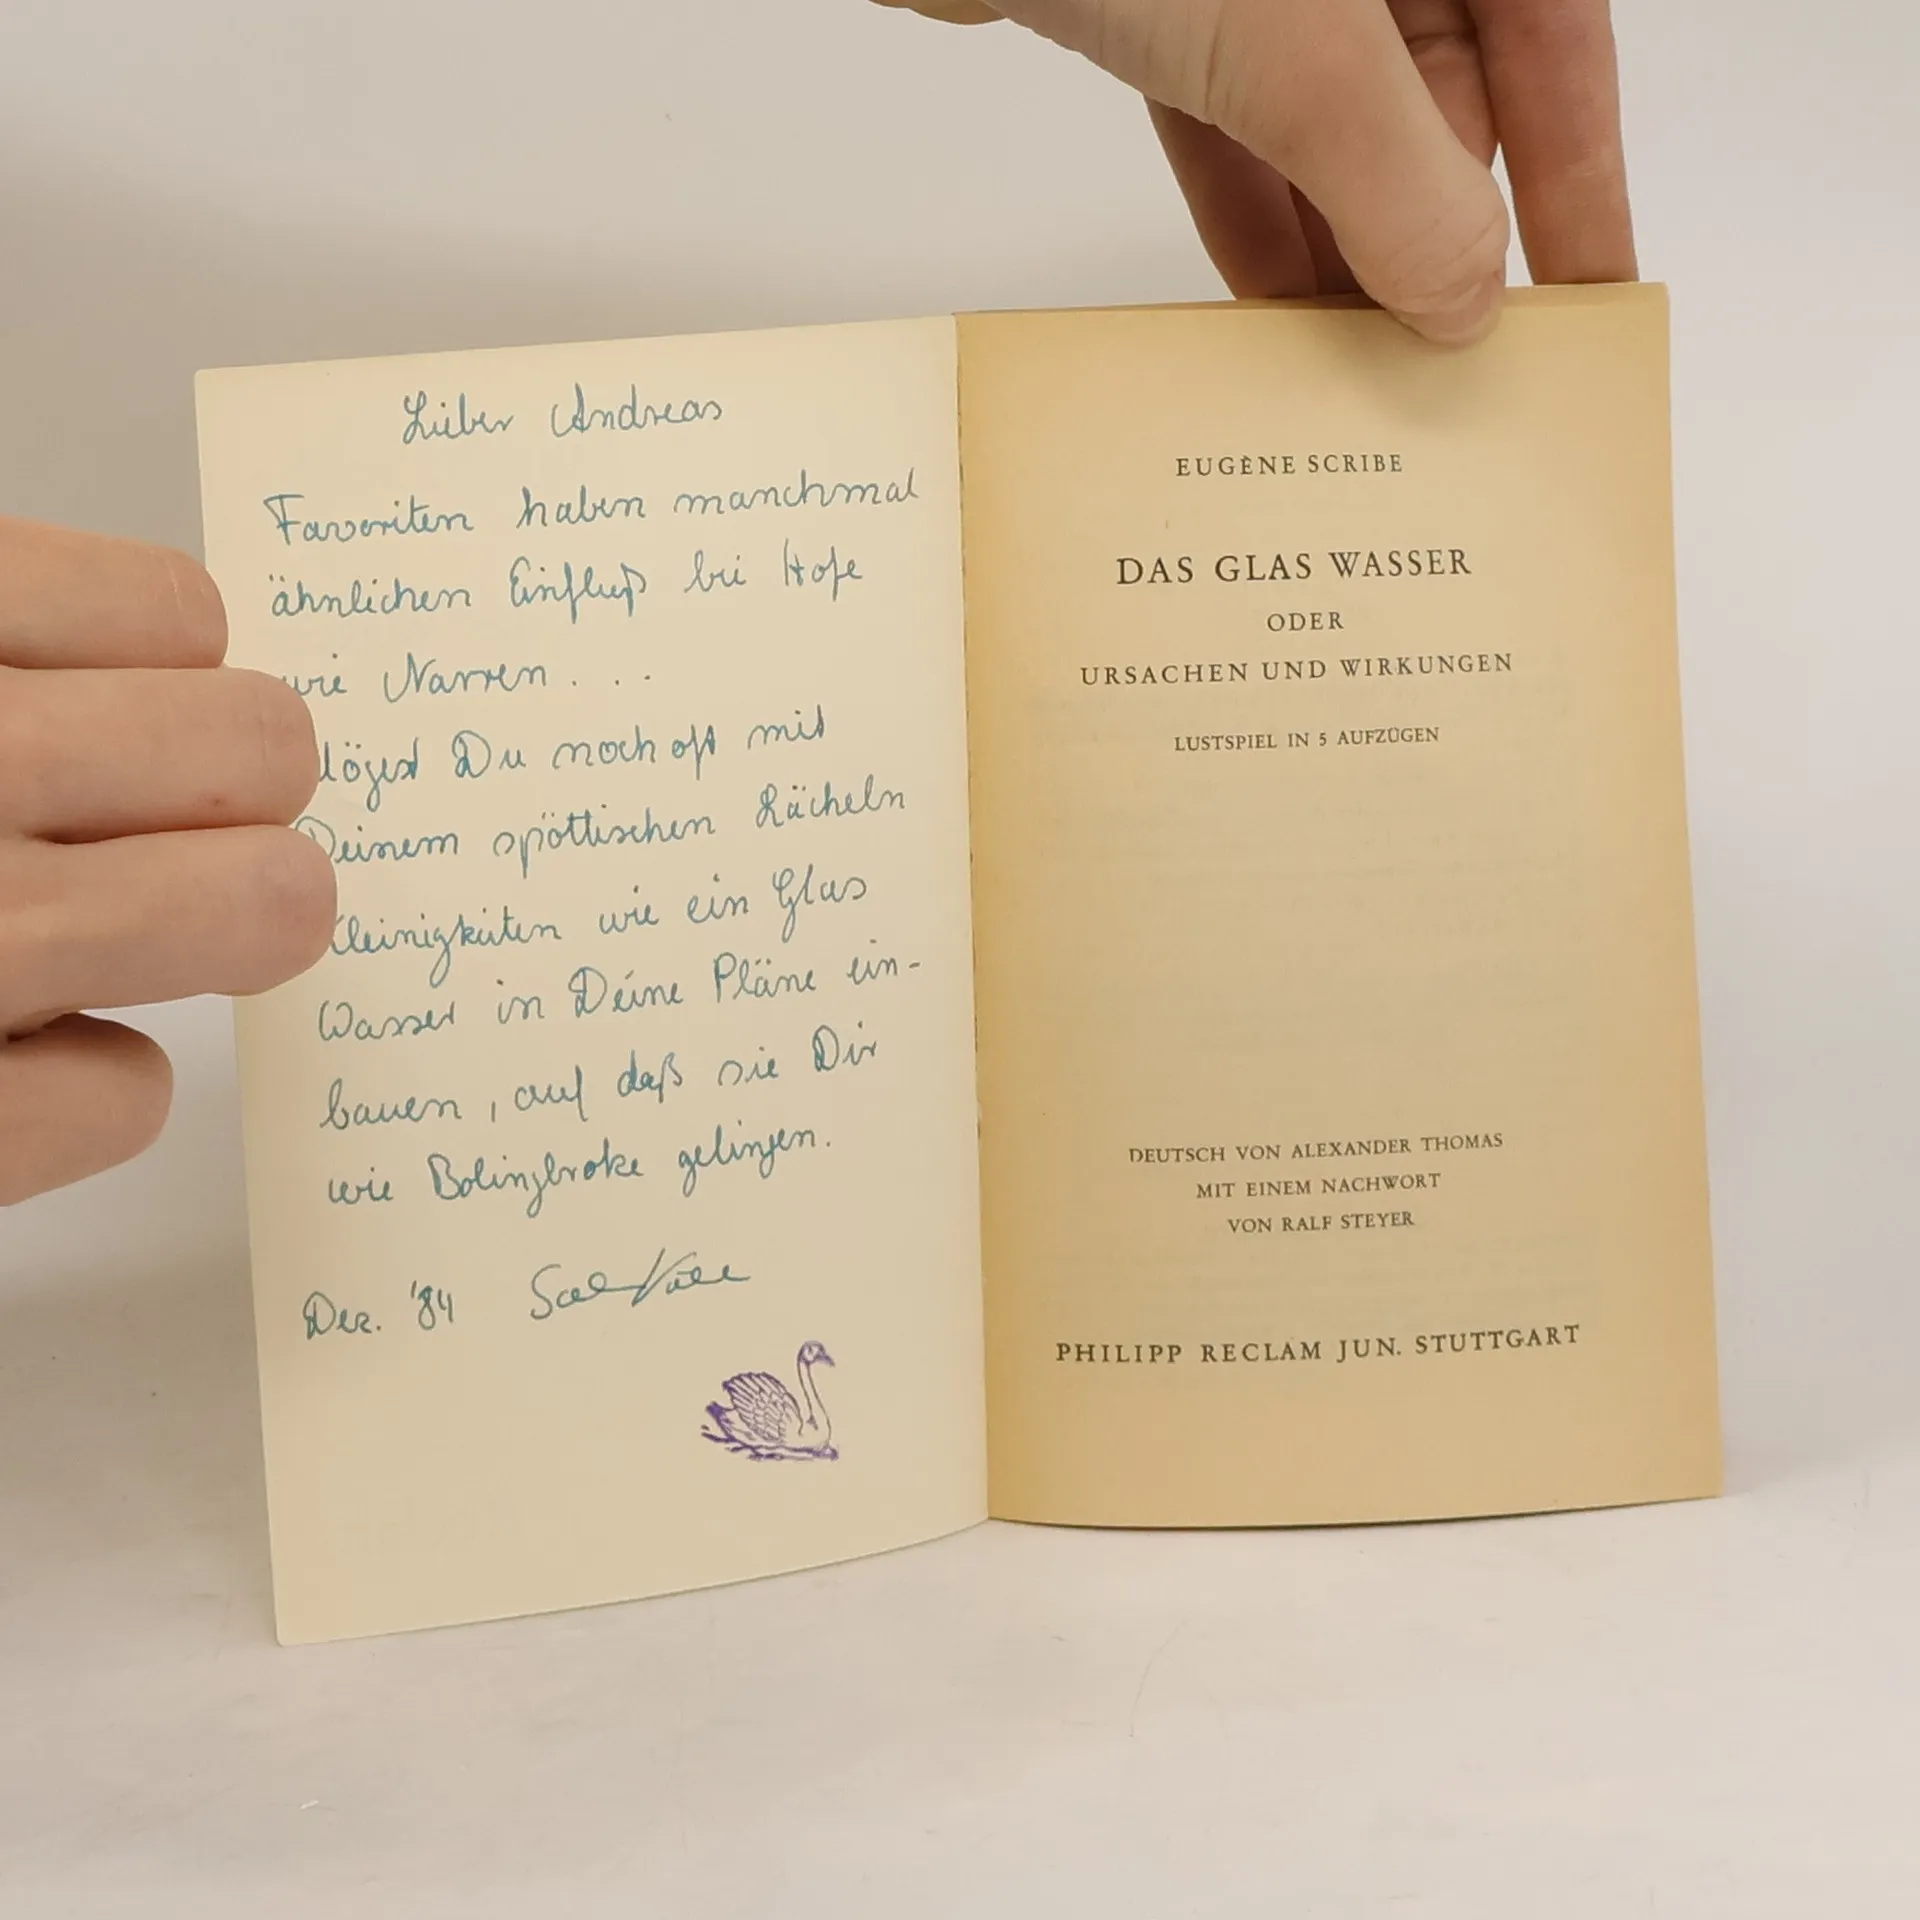 Lieber Andreas
Favoriten haben manchmal
ähnlichen Einfluß bei Hofe
wie Narren . . .
mögest Du noch oft mit
Deinem spöttischen Lächeln
Kleinigkeiten wie ein Glas
Wasser in Deine Pläne ein-
bauen, auf daß sie Dir
wie Bolingbroke gelingen.
Dez. '84
EUGÈNE SCRIBE
DAS GLAS WASSER
ODER
URSACHEN UND WIRKUNGEN
LUSTSPIEL IN 5 AUFZÜGEN
DEUTSCH VON ALEXANDER THOMAS
MIT EINEM NACHWORT
VON RALF STEYER
PHILIPP RECLAM JUN. STUTTGART